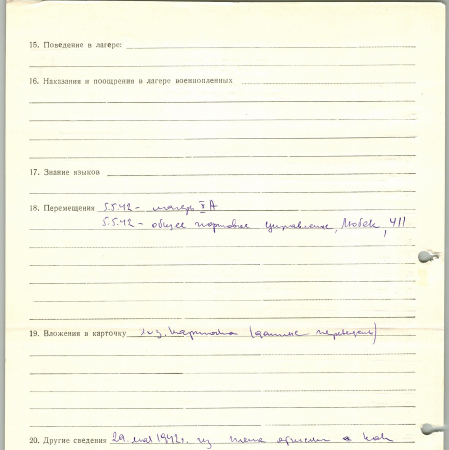 15. Поведение в лагере:
16. Наказания и поощрения в лагере военнопленных
17. Знание языков
18. Перемещения 5.5.42 - лагерь X A
5.5.42 - общее портовое управление, Любек, 411
19. Вложения в карточку карточка (данные
20. Другие сведения 29. мая 1942г. из плена как